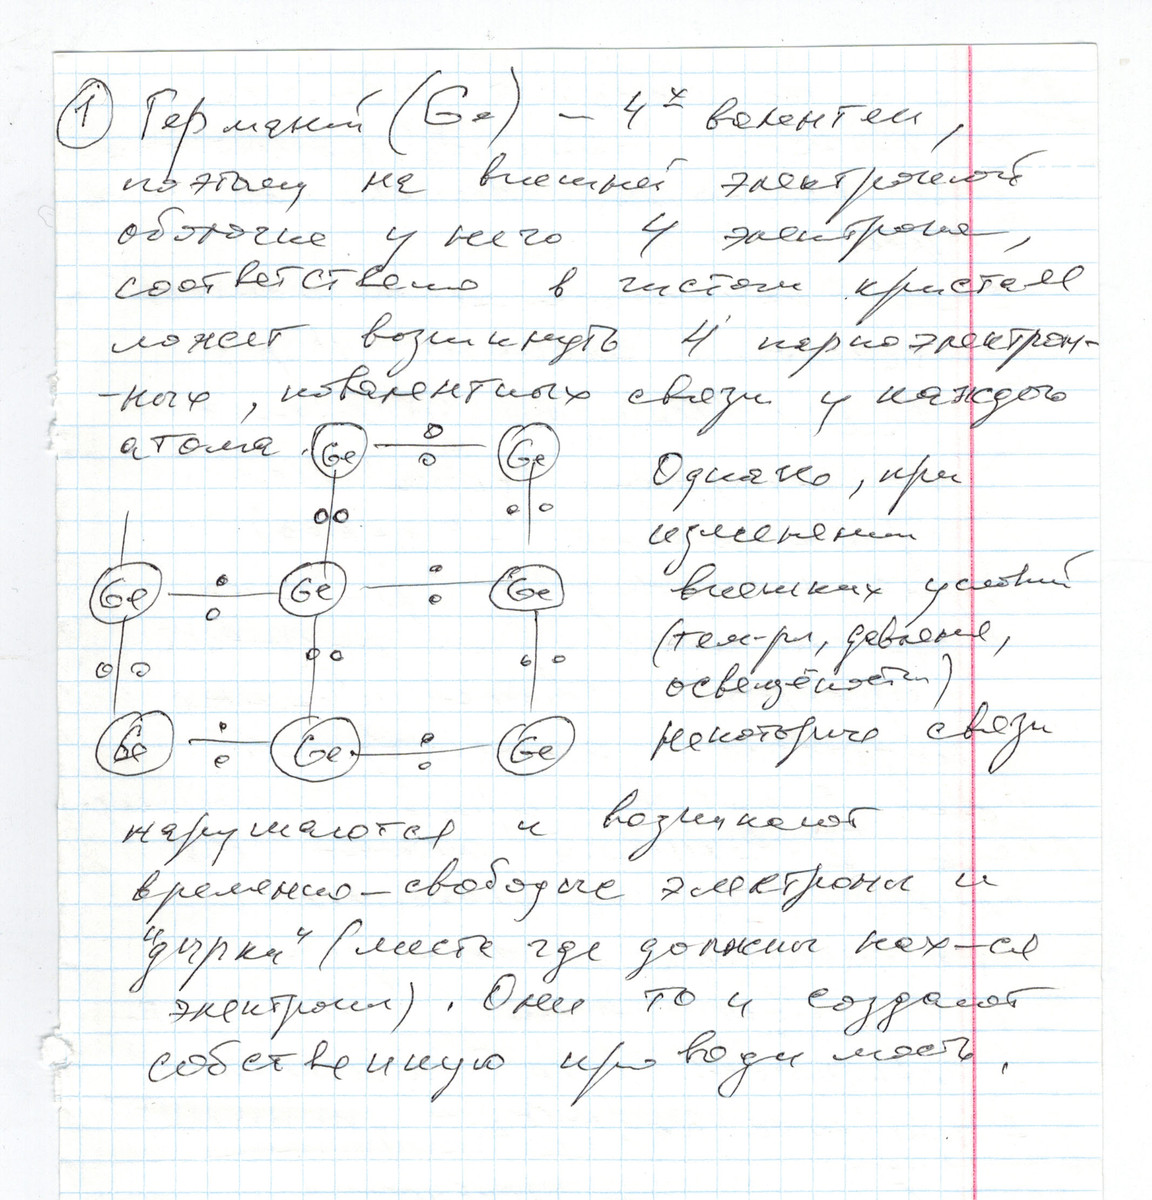 ① Германий (Ge) – 4х валентен,
поэтому на внешней электронной
оболочке у него 4 электрона,
соответственно в чистом кристалле
может возникнуть 4 парноэлектрон-
-ных, ковалентных связи у каждого
атома.
Ge Ge
Ge Ge Ge
Ge Ge Ge
Однако, при
изменении
внешних условий
(тем-ры, давления,
освещённости)
некоторые связи
нарушаются и возникают
временно-свободные электроны и
"дырки" (места где должны нах-ся
электроны). Они то и создают
собственную проводимость.